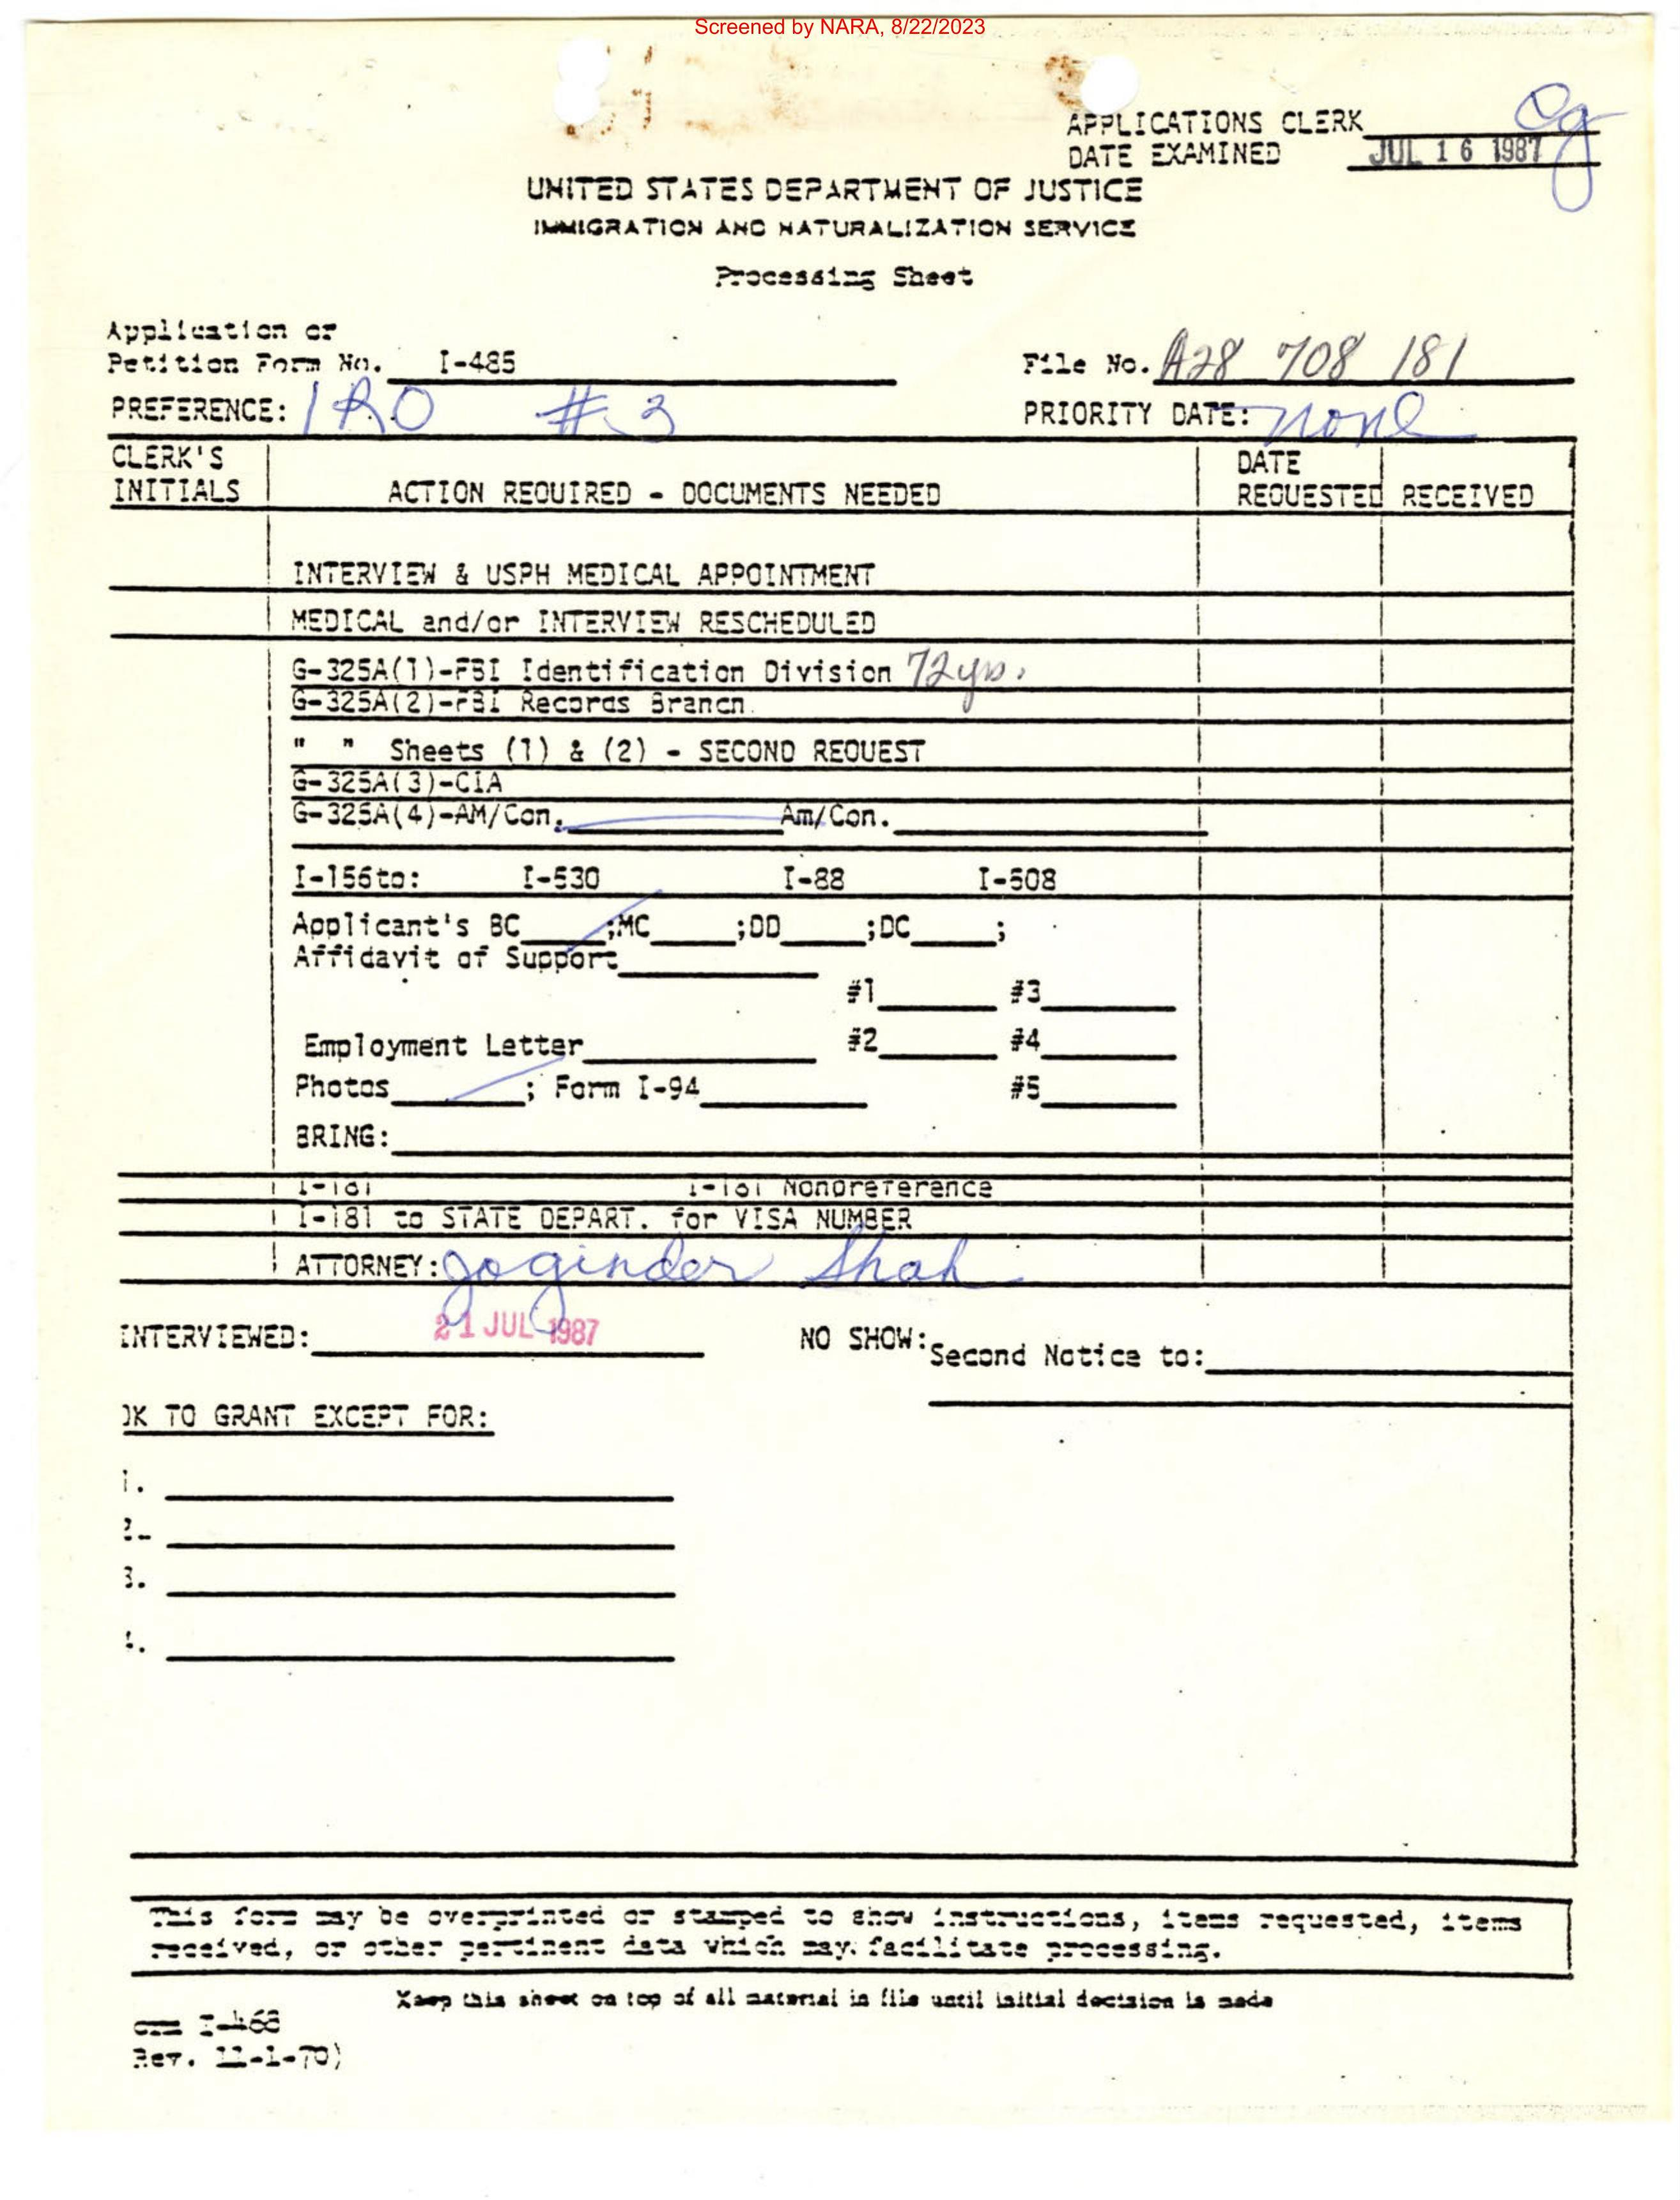 Screened by NARA, 8/22/2023
APPLICATIONS CLERK
DATE EXAMINED JUL 16 1987
UNITED STATES DEPARTMENT OF JUSTICE
IMMIGRATION AND NATURALIZATION SERVICE
Processing Sheet
Application or
Petition Form No. I-485 File No. A28 708 181
PREFERENCE: IRO #3 PRIORITY DATE: none
CLERK'S DATE
INITIALS ACTION REQUIRED - DOCUMENTS NEEDED REQUESTED RECEIVED
INTERVIEW & USPH MEDICAL APPOINTMENT
MEDICAL and/or INTERVIEW RESCHEDULED
G-325A(1)-FBI Identification Division 72yrs.
G-325A(2)-FBI Records Branch
" " Sheets (1) & (2) - SECOND REQUEST
G-325A(3)-CIA
G-325A(4)-AM/Con. Am/Con.
I-156to: I-530 I-88 I-508
Applicant's BC ;MC ;DD ;DC ;
Affidavit of Support
#1 #3
Employment Letter #2 #4
Photos ; Form I-94 #5
BRING:
I-181 I-181 Nonpreference
I-181 to STATE DEPART. for VISA NUMBER
ATTORNEY: Joginder Shah
INTERVIEWED: 21 JUL 1987 NO SHOW: Second Notice to:
OK TO GRANT EXCEPT FOR:
1.
2.
3.
4.
This form may be overprinted or stamped to show instructions, items requested, items
received, or other pertinent data which may facilitate processing.
Keep this sheet on top of all material in file until initial decision is made
I-468
Rev. 11-1-70)